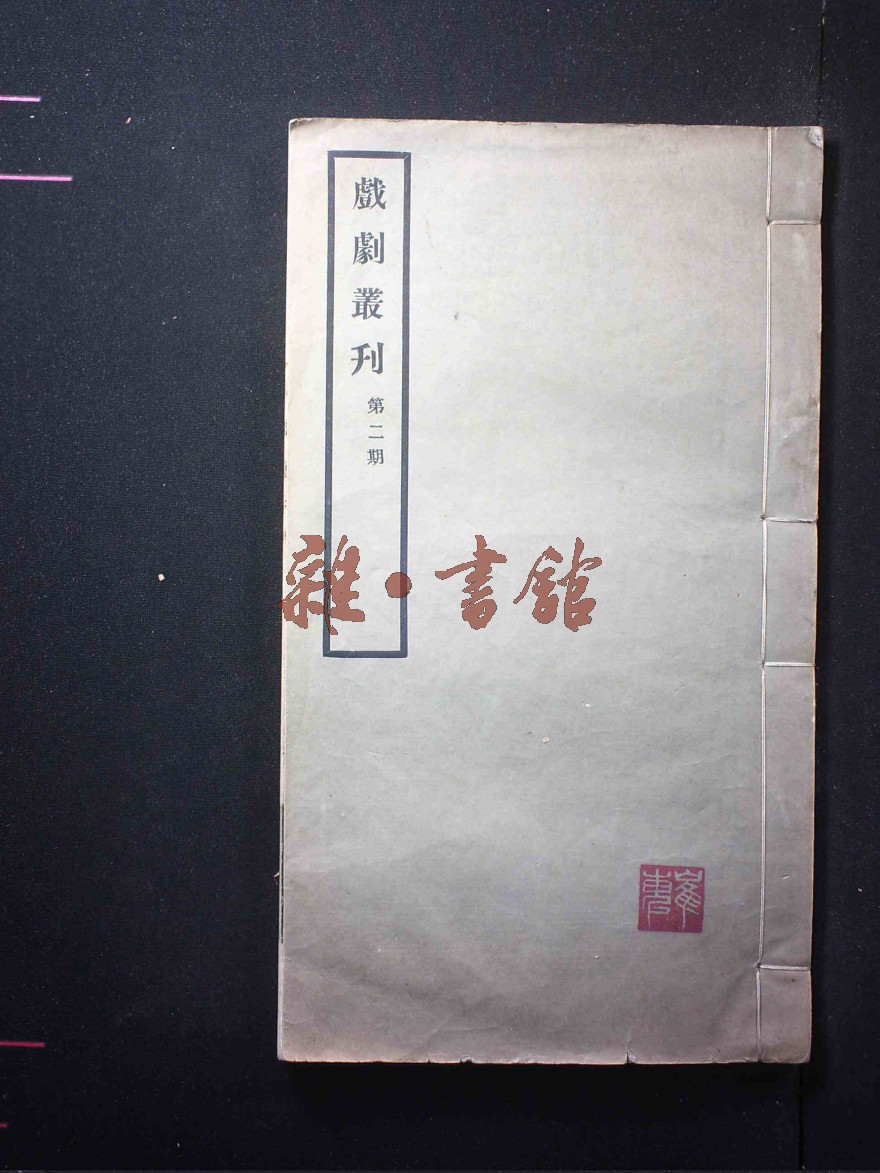 戲劇叢刊
第二期
雜·書館